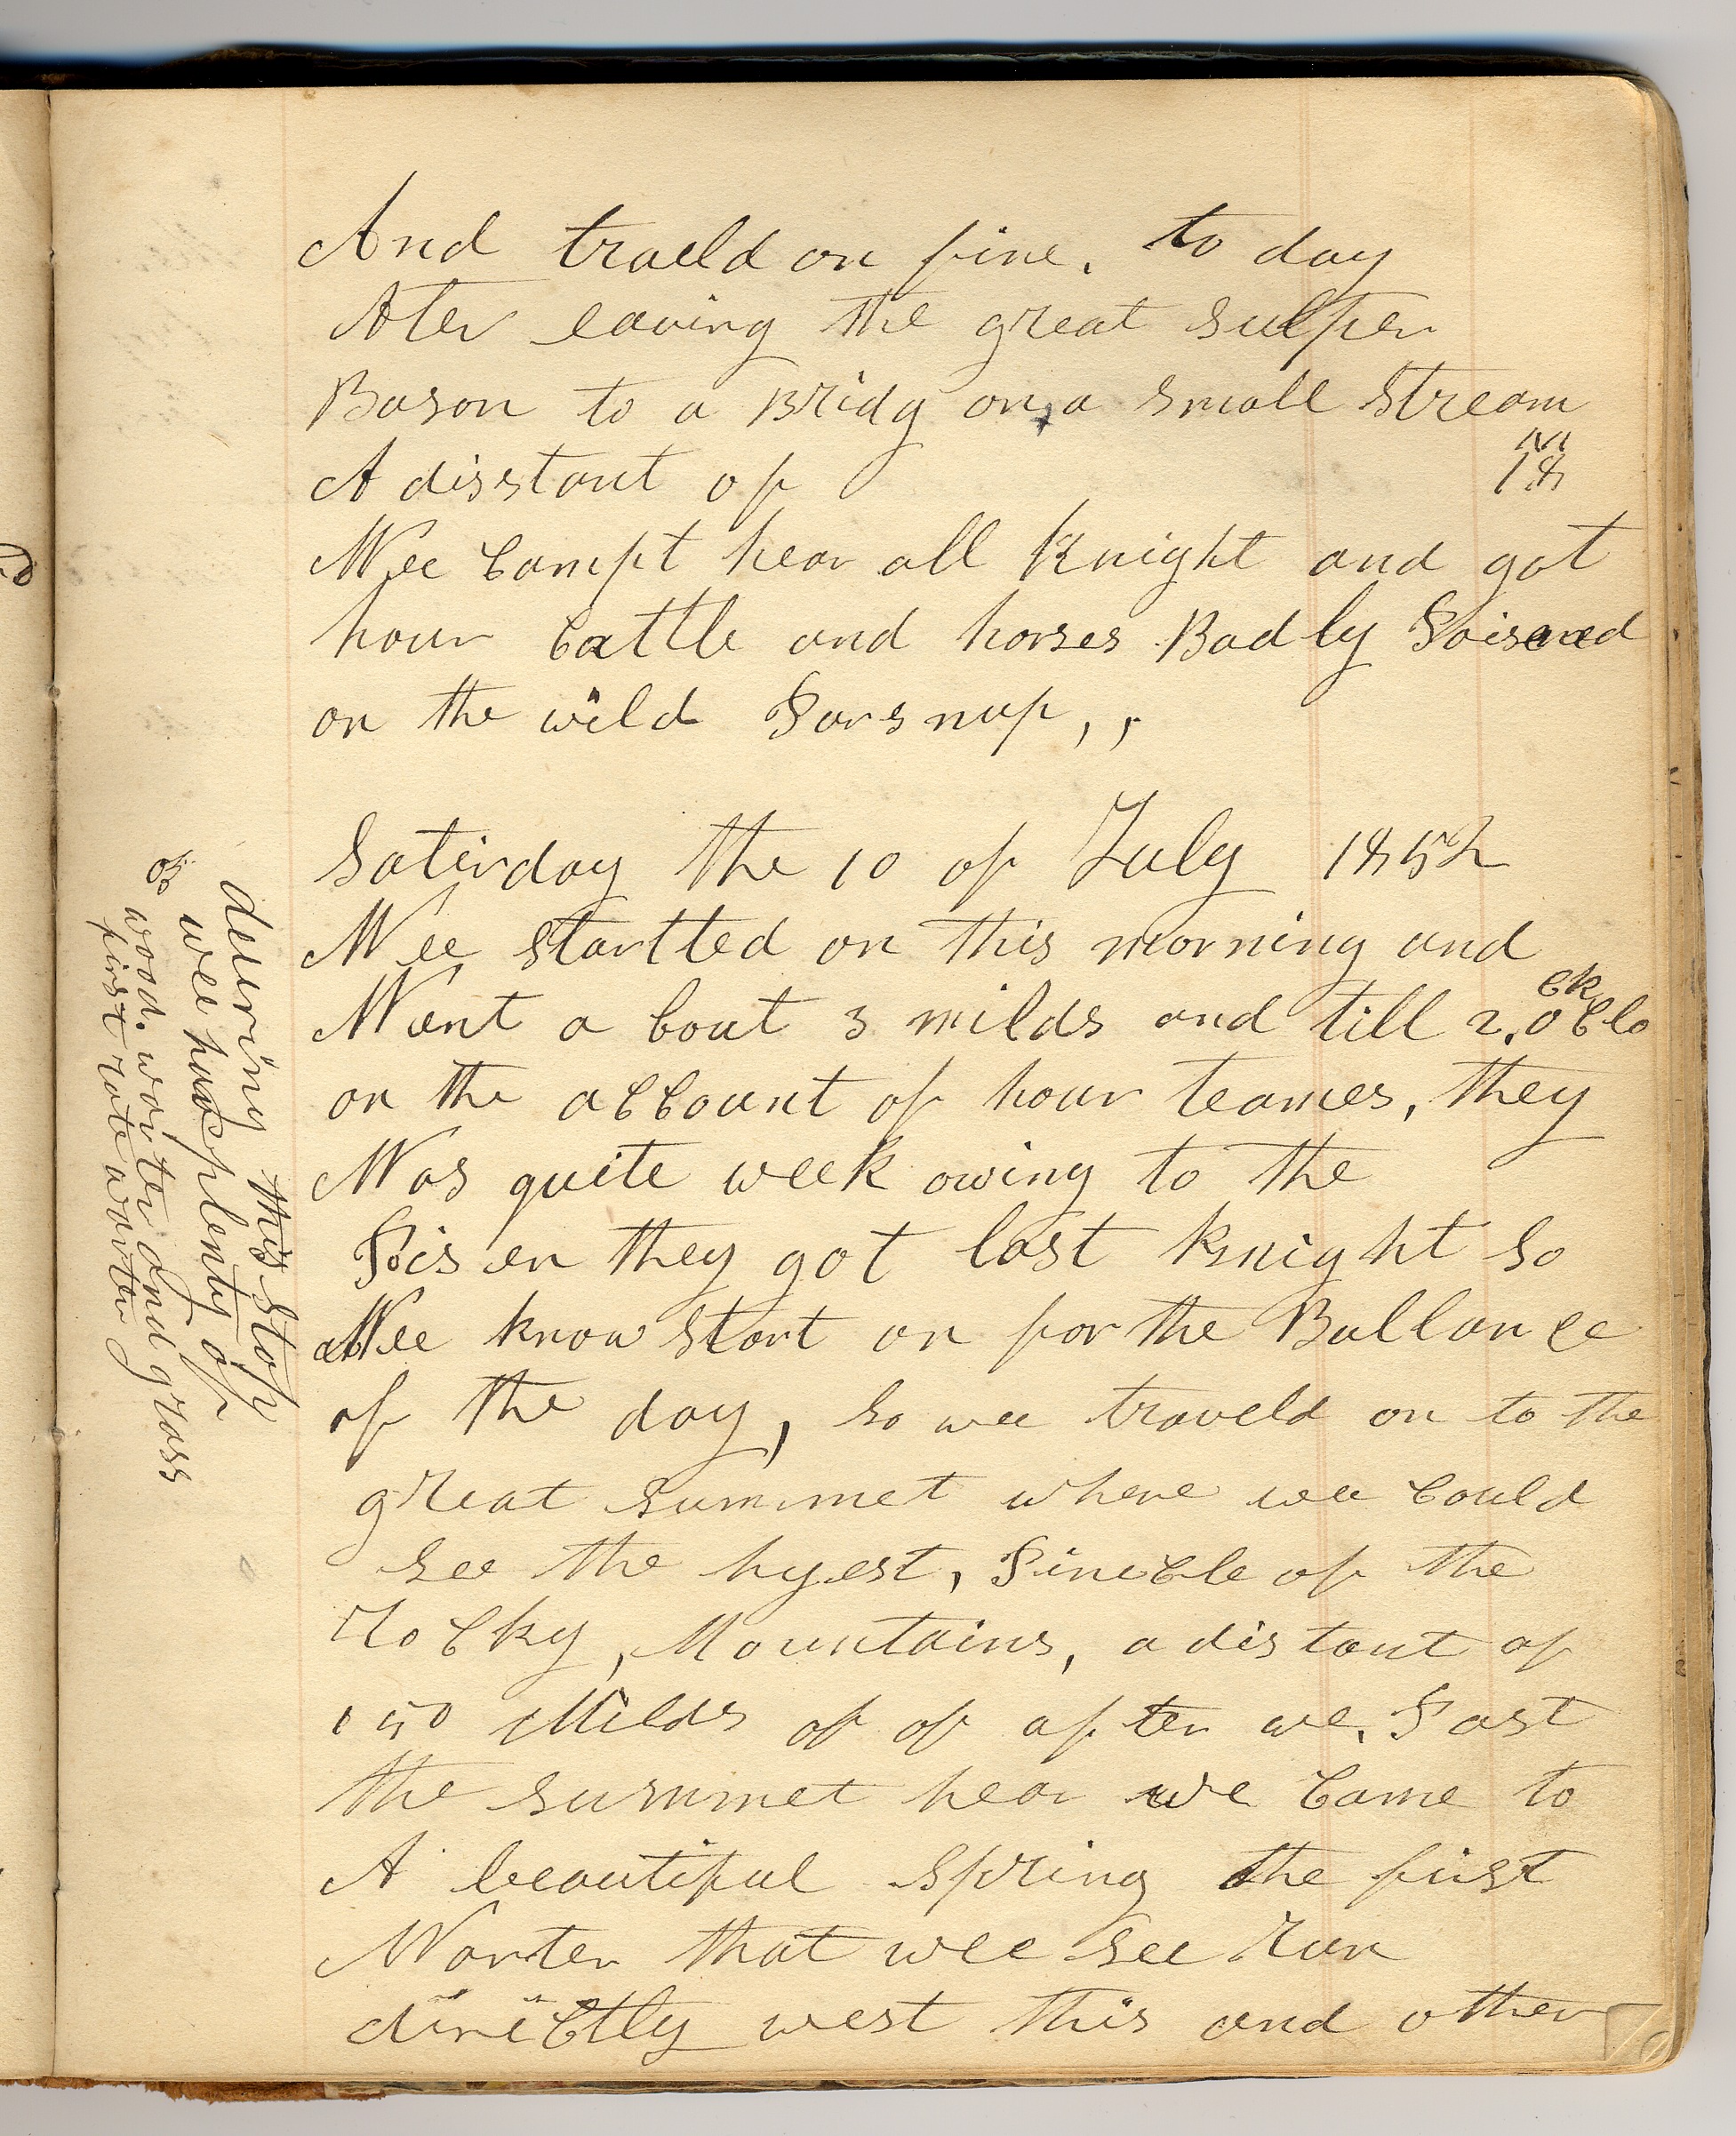 And traeld on fine. to day
Ater eaving the great sulper
Bason to a Bridg on a small Stream
A disstant of 18 M
Wee Campt hear all Knight and got
hour Cattle and horses Badly Poisened
on the wild Parsnup,,
Saturday the 10 of July 1852
Wee startted on this morning and
Went a bout 3 milds and till 2,0 Clock
on the account of hour teames, they
Was quite week owing to the
Poisen they got last Knight so
Wee know Start on for the Ballance
of the day, so wee traveld on to the
great summet where wee Could
see the hyest, Pinicle of the
rocky, Mountains, a distant of
150 Milds of of after we, Past
the summet hear we Came to
A beautiful spring the first
Warter that wee see run
directly west this and other
deuring this stop
wee have plenty of
wood. warter and grass
first rate warter